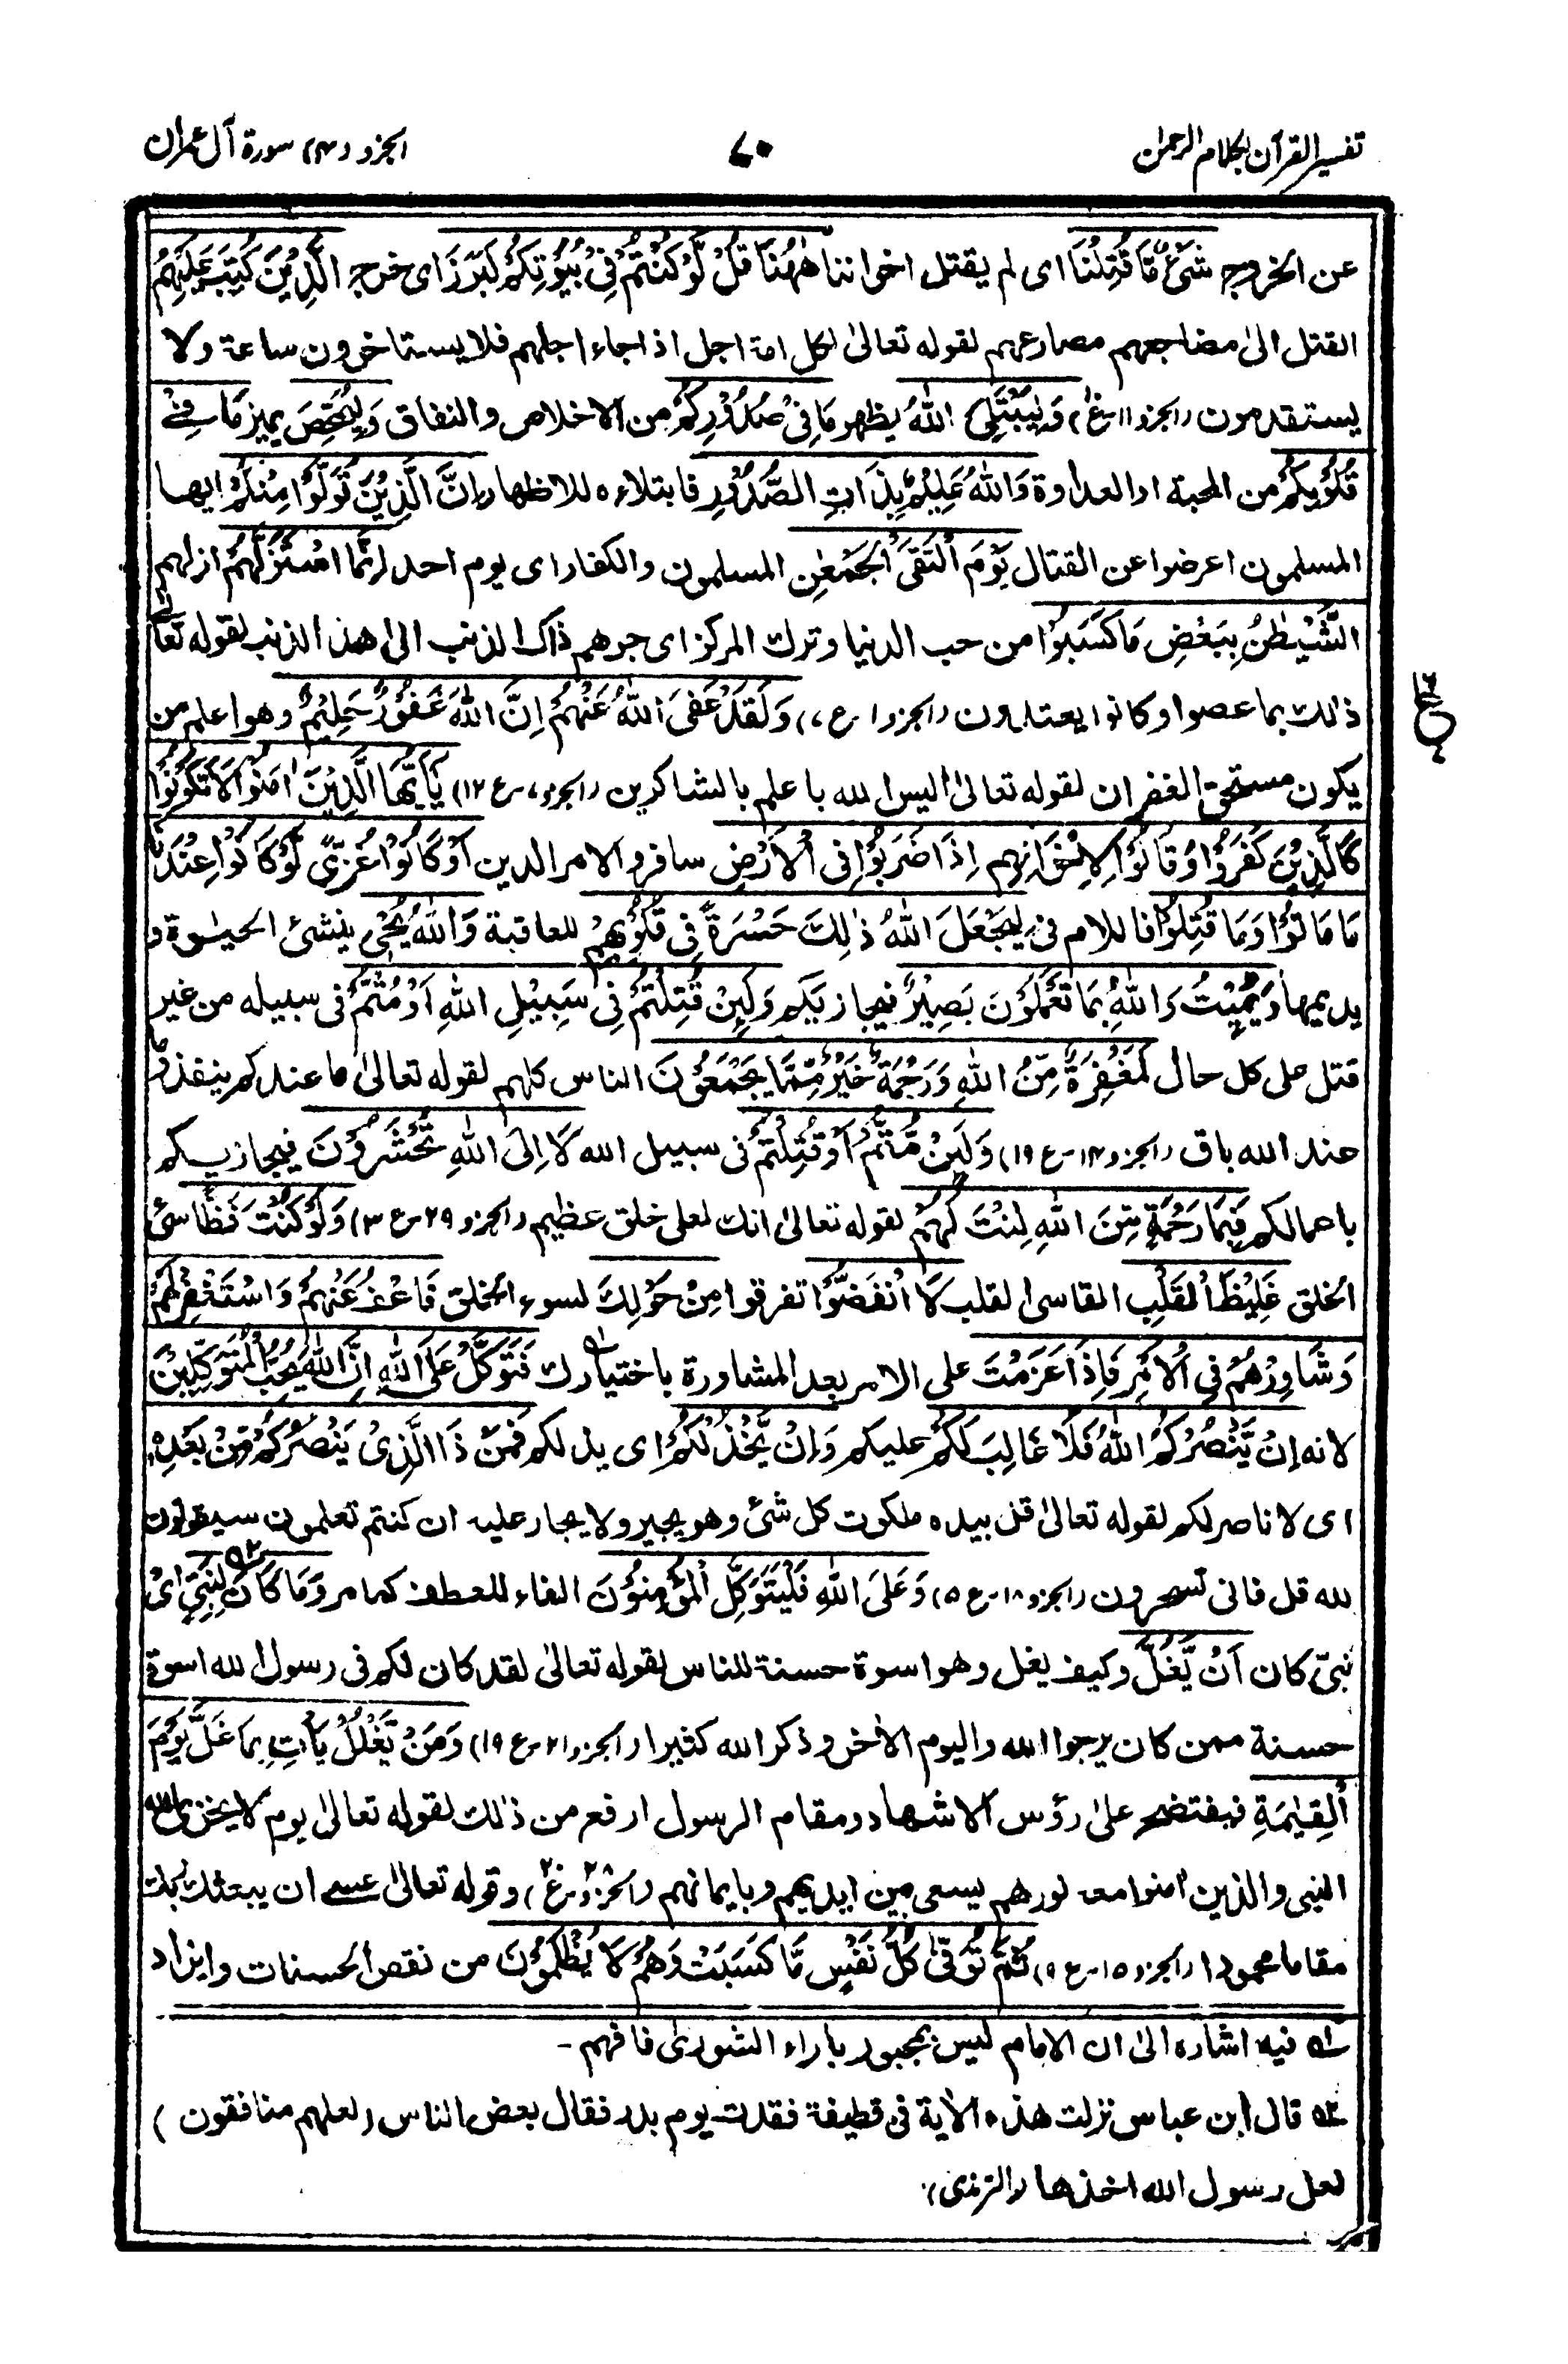 تفسير القرآن بكلام الرحمان
٧٠
الجزو (٤) سورة آل عمران
عن الخروج شَىْءٌ مَّا قُتِلْنَا اى لم يقتل اخواننا هٰهُنَا قُلْ لَّوْ كُنْتُمْ فِىْ بُيُوْتِكُمْ لَبَرَزَ اى خرج الَّذِيْنَ كُتِبَ عَلَيْهِمُ
القتل الىٰ مضاجعهم مصارعهم لقوله تعالىٰ لكل امة اجل اذا جاء اجلهم فلا يستاخرون ساعة ولا
يستقدمون (الجزو ١١-ع) وَلِيَبْتَلِىَ اللّٰهُ يظهر مَا فِىْ صُدُوْرِكُمْ من الاخلاص والنفاق وَلِيُمَحِّصَ يميز مَا فِىْ
قُلُوْبِكُمْ من المحبة او العداوة وَاللّٰهُ عَلِيْمٌۢ بِذَاتِ الصُّدُوْرِ فابتلاءه للاظهار اِنَّ الَّذِيْنَ تَوَلَّوْا مِنْكُمْ ايها
المسلمون اعرضوا عن القتال يَوْمَ الْتَقَى الْجَمْعٰنِ المسلمون والكفار اى يوم احد اِنَّمَا اسْتَزَلَّهُمُ ازلهم
الشَّيْطٰنُ بِبَعْضِ مَا كَسَبُوْا من حب الدنيا وترك المركز اى جرهم ذاك الذنب الىٰ هذا الذنب لقوله تعالىٰ
ذٰلك بما عصوا وكانوا يعتدون (الجزو ١-ع ٧) وَلَقَدْ عَفَى اللّٰهُ عَنْهُمْ اِنَّ اللّٰهَ غَفُوْرٌ حَلِيْمٌ وهو اعلم من
يكون مستحق الغفران لقوله تعالىٰ اليس الله باعلم بالشاكرين (الجزو ٧-ع ١٢) يٰٓاَيُّهَا الَّذِيْنَ اٰمَنُوْا لَا تَكُوْنُوْا
كَالَّذِيْنَ كَفَرُوْا وَقَالُوْا لِاِخْوَانِهِمْ اِذَا ضَرَبُوْا فِى الْاَرْضِ سافروا لامر الدين اَوْ كَانُوْا غُزًّى لَّوْ كَانُوْا عِنْدَنَا
مَا مَاتُوْا وَمَا قُتِلُوْا فاللام فى لِيَجْعَلَ اللّٰهُ ذٰلِكَ حَسْرَةً فِىْ قُلُوْبِهِمْ للعاقبة وَاللّٰهُ يُحْىٖ ينشئ الحيٰوة و
يديمها وَيُمِيْتُ وَاللّٰهُ بِمَا تَعْمَلُوْنَ بَصِيْرٌ فيجازيكم وَلَئِنْ قُتِلْتُمْ فِىْ سَبِيْلِ اللّٰهِ اَوْ مُتُّمْ فى سبيله من غير
قتل على كل حال لَمَغْفِرَةٌ مِّنَ اللّٰهِ وَرَحْمَةٌ خَيْرٌ مِّمَّا يَجْمَعُوْنَ الناس كلهم لقوله تعالىٰ ما عندكم ينفذ وما
عند الله باق (الجزو ١٤-ع ١٩) وَلَئِنْ مُّتُّمْ اَوْ قُتِلْتُمْ فى سبيل الله لَاِلَى اللّٰهِ تُحْشَرُوْنَ فيجازيكم
باعمالكم فَبِمَا رَحْمَةٍ مِّنَ اللّٰهِ لِنْتَ لَهُمْ لقوله تعالىٰ انك لعلى خلق عظيم (الجزو ٢٩-ع ٣) وَلَوْ كُنْتَ فَظًّا سئ
الخلق غَلِيْظَ الْقَلْبِ القاسى القلب لَا انْفَضُّوْا تفرقوا مِنْ حَوْلِكَ لسوء الخلق فَاعْفُ عَنْهُمْ وَاسْتَغْفِرْ لَهُمْ
وَشَاوِرْهُمْ فِى الْاَمْرِ فَاِذَا عَزَمْتَ على الامر بعد المشاورة باختيارك ؎١ فَتَوَكَّلْ عَلَى اللّٰهِ اِنَّ اللّٰهَ يُحِبُّ الْمُتَوَكِّلِيْنَ
لانه اِنْ يَّنْصُرْكُمُ اللّٰهُ فَلَا غَالِبَ لَكُمْ عليكم وَاِنْ يَّخْذُلْكُمْ اى يذلكم فَمَنْ ذَا الَّذِىْ يَنْصُرُكُمْ مِّنْۢ بَعْدِهٖ
اى لا ناصر لكم لقوله تعالىٰ قل بيده ملكوت كل شئ وهو يجير ولا يجار عليه ان كنتم تعلمون سيقولون
لله قل فانى تسحرون (الجزو ١٨-ع ٥) وَعَلَى اللّٰهِ فَلْيَتَوَكَّلِ الْمُؤْمِنُوْنَ الفاء للعطف كما مر وَمَا كَانَ ؎٢ لِنَبِىٍّ اى
نبىّ كان اَنْ يَّغُلَّ وكيف يغل وهو اسوة حسنة للناس لقوله تعالىٰ لقد كان لكم فى رسول الله اسوة
حسنة ممن كان يرجوا الله واليوم الاٰخر وذكر الله كثيرا (الجزو ٢١-ع ١٩) وَمَنْ يَّغْلُلْ يَأْتِ بِمَا غَلَّ يَوْمَ
الْقِيٰمَةِ فيفتضح علىٰ رؤس الاشهاد ومقام الرسول ارفع من ذٰلك لقوله تعالىٰ يوم لا يخزى الله
النبى والذين اٰمنوا معه نورهم يسعى بين ايديهم وبايمانهم (الجزو ٢٨-ع ٢٠) وقوله تعالىٰ عسىٰ ان يبعثك ربك
مقاما محمودا (الجزو ١٥-ع ٩) ثُمَّ تُوَفّٰى كُلُّ نَفْسٍ مَّا كَسَبَتْ وَهُمْ لَا يُظْلَمُوْنَ من نقص الحسنات وايزاد
؎١ فيه اشاره الىٰ ان الامام ليس بمجبور باراء الشورىٰ فافهم-
؎٢ قال ابن عباس نزلت هذه الاٰية فى قطيفة فقدت يوم بدر فقال بعض الناس (لعلهم منافقون)
لعل رسول الله اخذها (الترمذى)